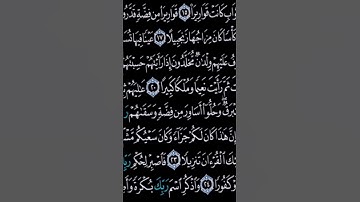 وَابٍ كَانَتْ قَوَارِيرَا۠ ١٥ قَوَارِيرَا۟ مِن فِضَّةٍ قَدَّرُو
كَأْسًا كَانَ مِزَاجُهَا زَنجَبِيلًا ١٧ عَيْنًا فِيهَا تُسَ
فُ عَلَيْهِمْ وِلْدَٰنٌ مُّخَلَّدُونَ إِذَا رَأَيْتَهُمْ حَسِبْتَهُمْ
ثَمَّ رَأَيْتَ نَعِيمًا وَمُلْكًا كَبِيرًا ٢٠ عَٰلِيَهُمْ
بْرَقٌ وَحُلُّوٓا۟ أَسَاوِرَ مِن فِضَّةٍ وَسَقَىٰهُمْ رَبُّ
إِنَّ هَٰذَا كَانَ لَكُمْ جَزَآءً وَكَانَ سَعْيُكُم مَّشْ
يْكَ ٱلْقُرْءَانَ تَنزِيلًا ٢٣ فَٱصْبِرْ لِحُكْمِ رَبِّ
وْ كَفُورًا ٢٤ وَٱذْكُرِ ٱسْمَ رَبِّكَ بُكْرَةً وَأَ